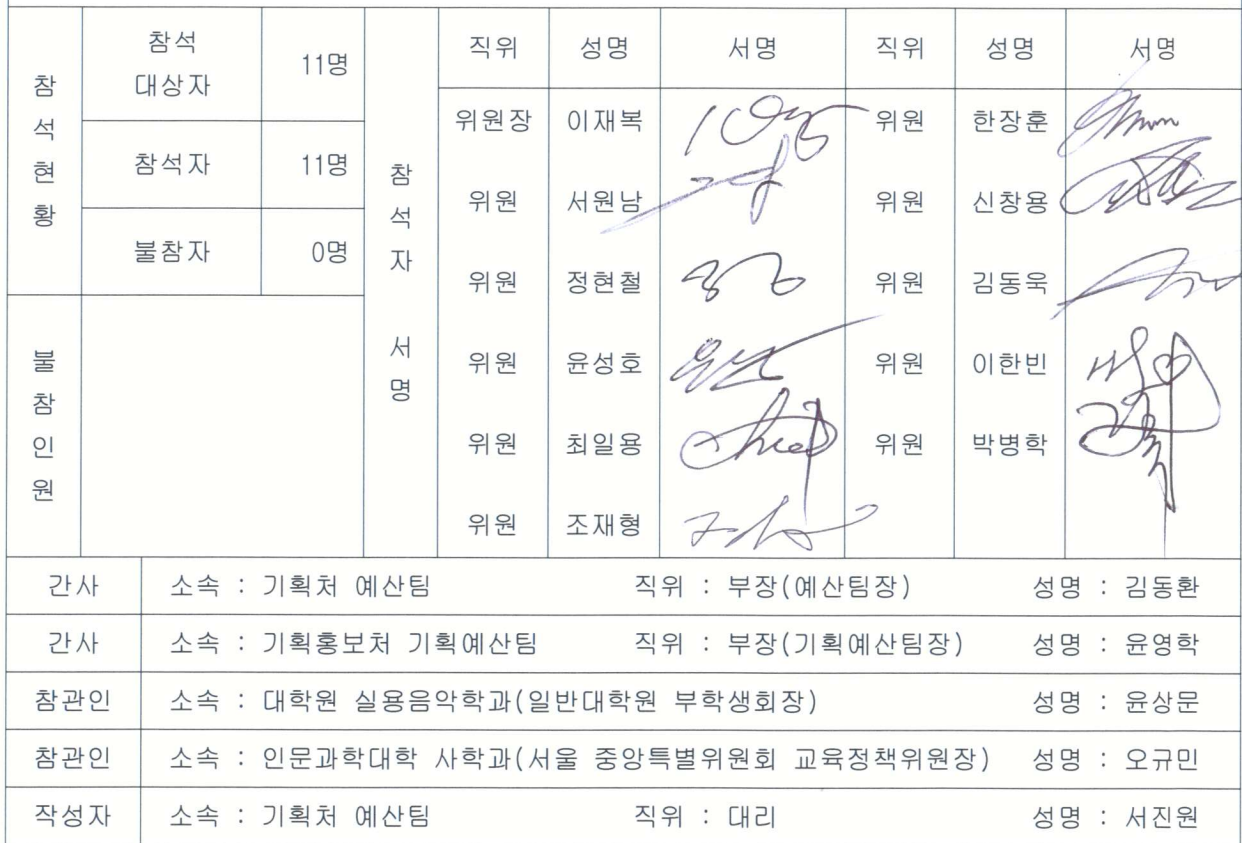 참석현황
참석 대상자 11명
참석자 11명
불참자 0명
불참인원
참석자 서명
직위 성명 서명 직위 성명 서명
위원장 이재복 위원 한장훈
위원 서원남 위원 신창용
위원 정현철 위원 김동욱
위원 윤성호 위원 이한빈
위원 최일용 위원 박병학
위원 조재형
간사 소속 : 기획처 예산팀 직위 : 부장(예산팀장) 성명 : 김동환
간사 소속 : 기획홍보처 기획예산팀 직위 : 부장(기획예산팀장) 성명 : 윤영학
참관인 소속 : 대학원 실용음악학과(일반대학원 부학생회장) 성명 : 윤상문
참관인 소속 : 인문과학대학 사학과(서울 중앙특별위원회 교육정책위원장) 성명 : 오규민
작성자 소속 : 기획처 예산팀 직위 : 대리 성명 : 서진원